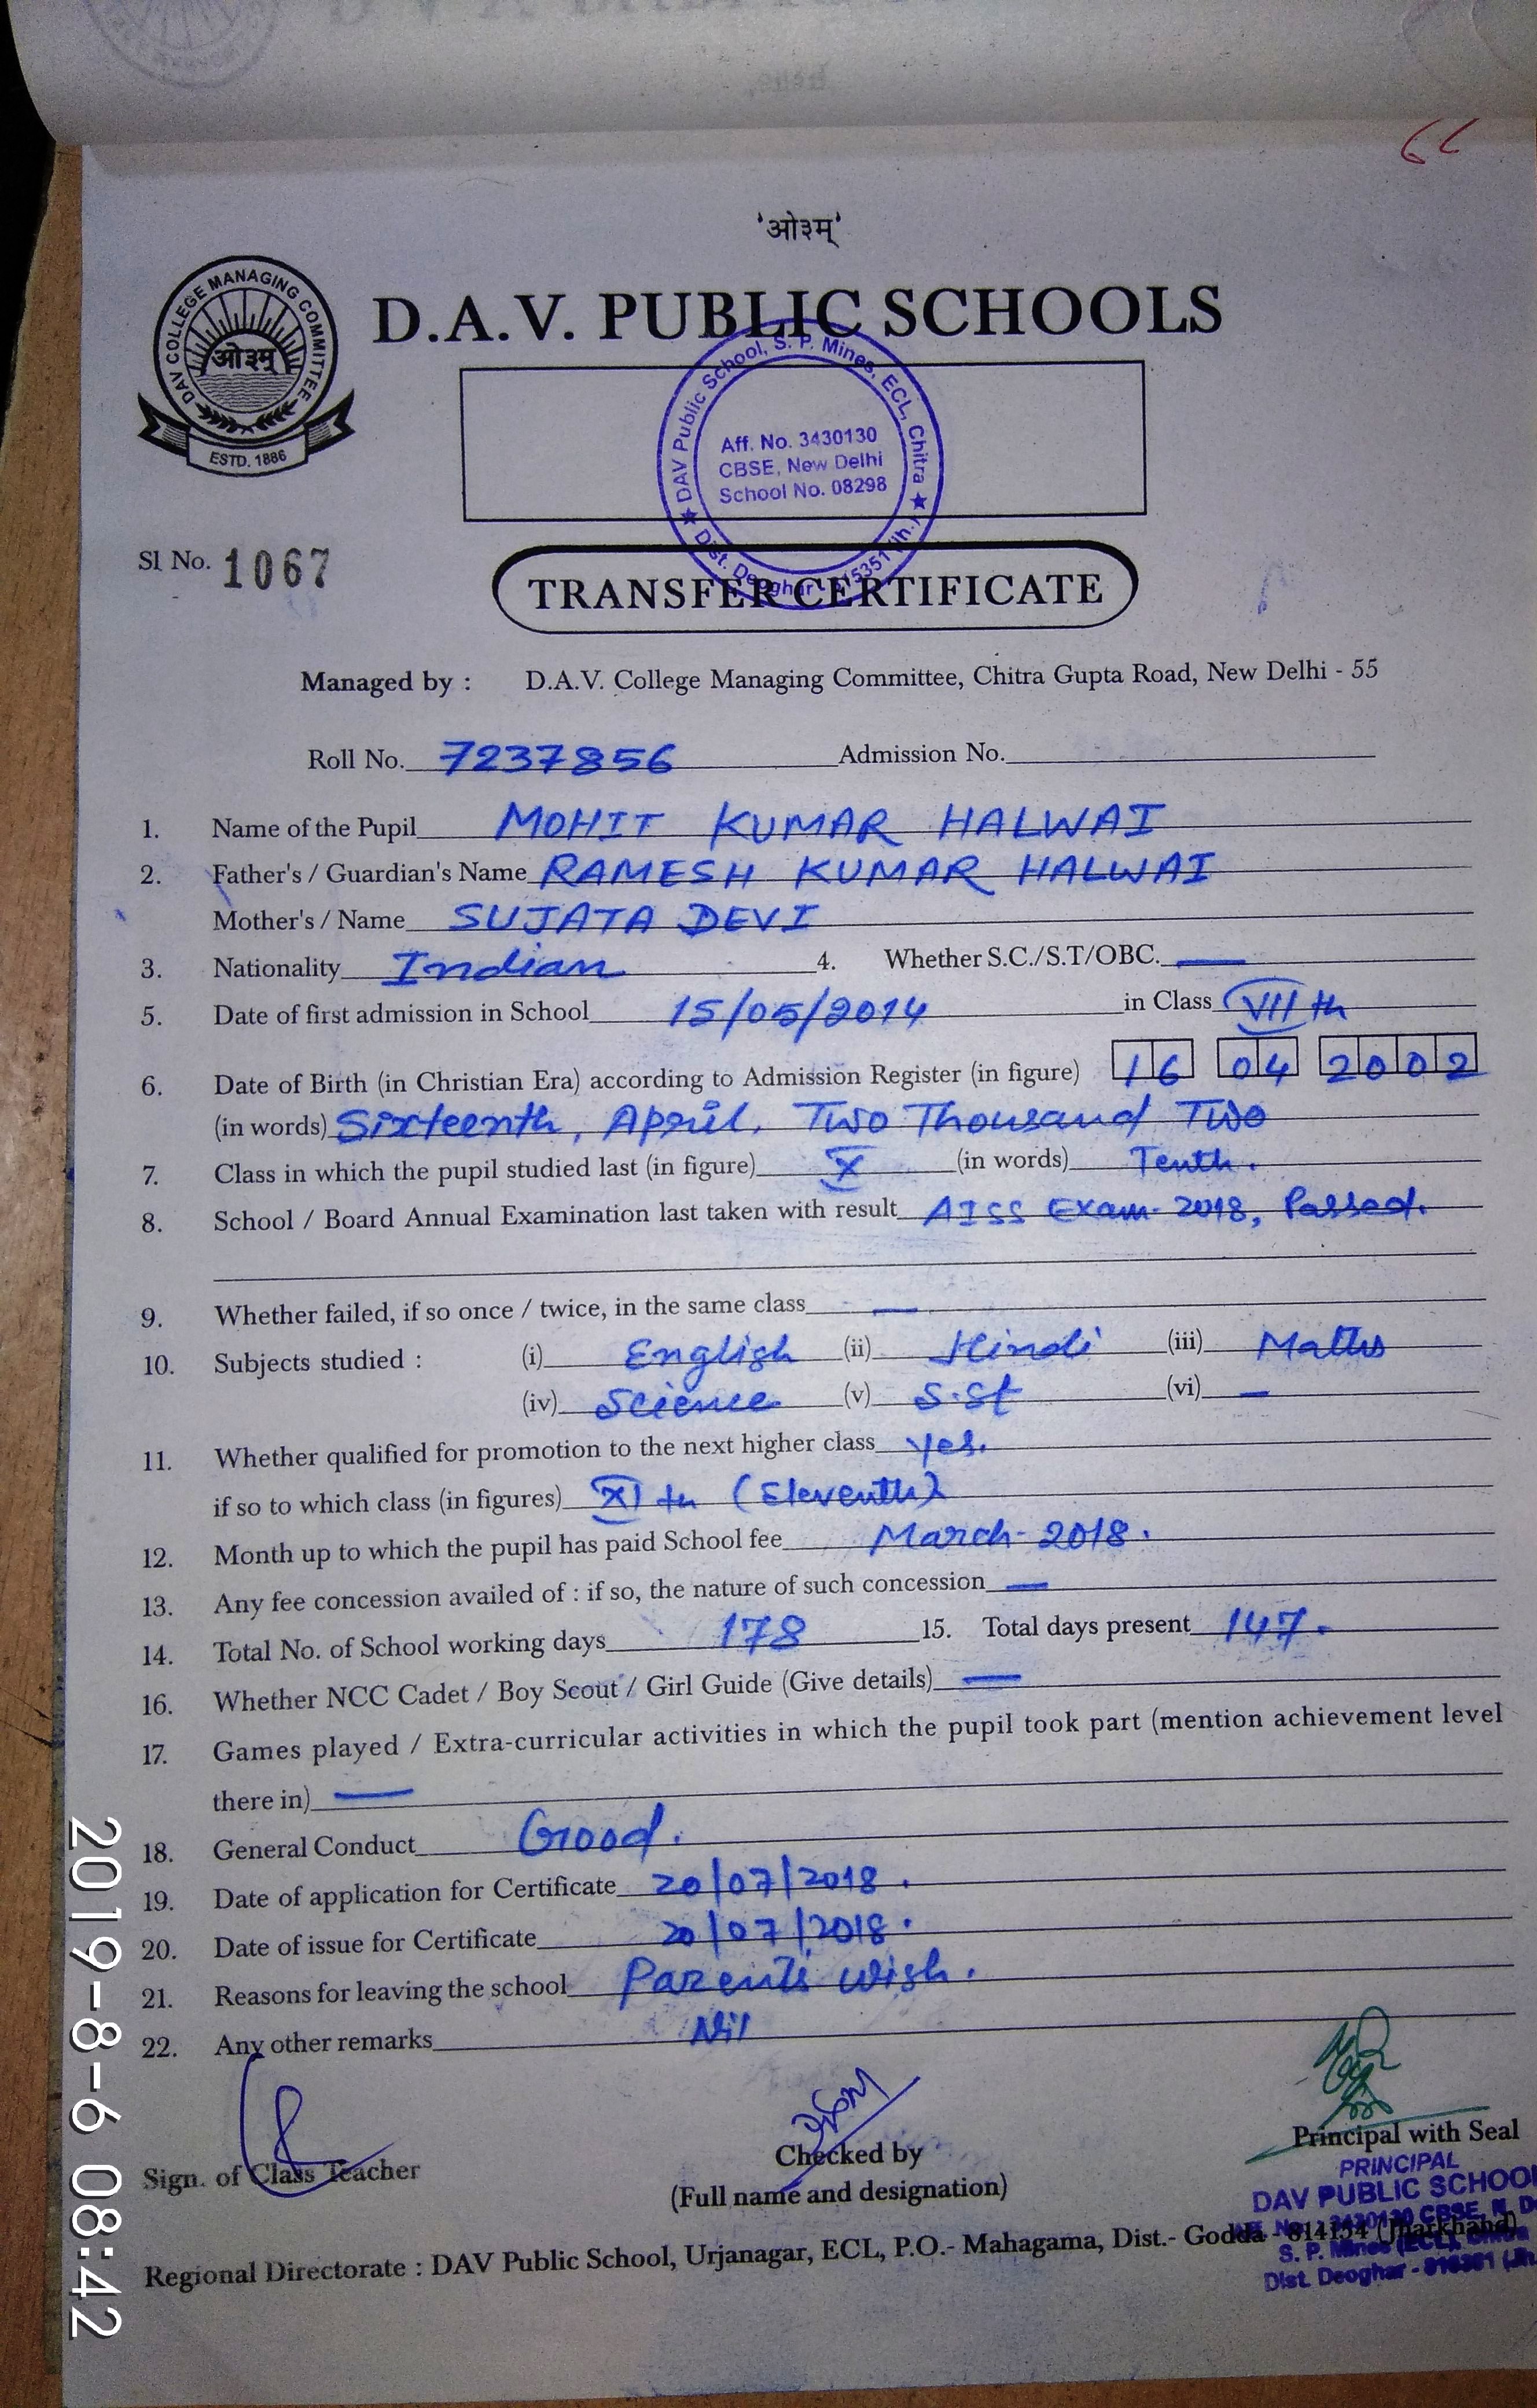 'ओ३म्'
DAV COLLEGE MANAGING COMMITTEE
ओ३म्
ESTD. 1886
D.A.V. PUBLIC SCHOOLS
DAV Public School, S. P. Mines, ECL, Chitra
Aff. No. 3430130
CBSE, New Delhi
School No. 08298
Dist. Deoghar - 815351 (Jh.)
Sl No. 1067
TRANSFER CERTIFICATE
Managed by : D.A.V. College Managing Committee, Chitra Gupta Road, New Delhi - 55
Roll No. 7237856 Admission No.
1. Name of the Pupil MOHIT KUMAR HALWAI
2. Father's / Guardian's Name RAMESH KUMAR HALWAI
Mother's / Name SUJATA DEVI
3. Nationality Indian 4. Whether S.C./S.T/OBC. —
5. Date of first admission in School 15/05/2014 in Class VII th
6. Date of Birth (in Christian Era) according to Admission Register (in figure) 16 04 2002
(in words) Sixteenth, April, Two Thousand Two
7. Class in which the pupil studied last (in figure) X (in words) Tenth.
8. School / Board Annual Examination last taken with result AISS Exam- 2018, Passed.
9. Whether failed, if so once / twice, in the same class —
10. Subjects studied : (i) English (ii) Hindi (iii) Maths
(iv) Science (v) S.St (vi) —
11. Whether qualified for promotion to the next higher class Yes.
if so to which class (in figures) XI th (Eleventh)
12. Month up to which the pupil has paid School fee March- 2018.
13. Any fee concession availed of : if so, the nature of such concession —
14. Total No. of School working days 178 15. Total days present 147.
16. Whether NCC Cadet / Boy Scout / Girl Guide (Give details) —
17. Games played / Extra-curricular activities in which the pupil took part (mention achievement level
there in) —
18. General Conduct Good.
19. Date of application for Certificate 20/07/2018.
20. Date of issue for Certificate 20/07/2018.
21. Reasons for leaving the school Parent's wish.
22. Any other remarks Nil
Sign. of Class Teacher
Checked by
(Full name and designation)
Principal with Seal
PRINCIPAL
DAV PUBLIC SCHOOL
3430130 CBSE, N. De
S. P. Mines (ECL),
Dist. Deoghar - 815351 (Jh
Regional Directorate : DAV Public School, Urjanagar, ECL, P.O.- Mahagama, Dist.- Godda - 814154 (Jharkhand)
2019-8-6 08:42